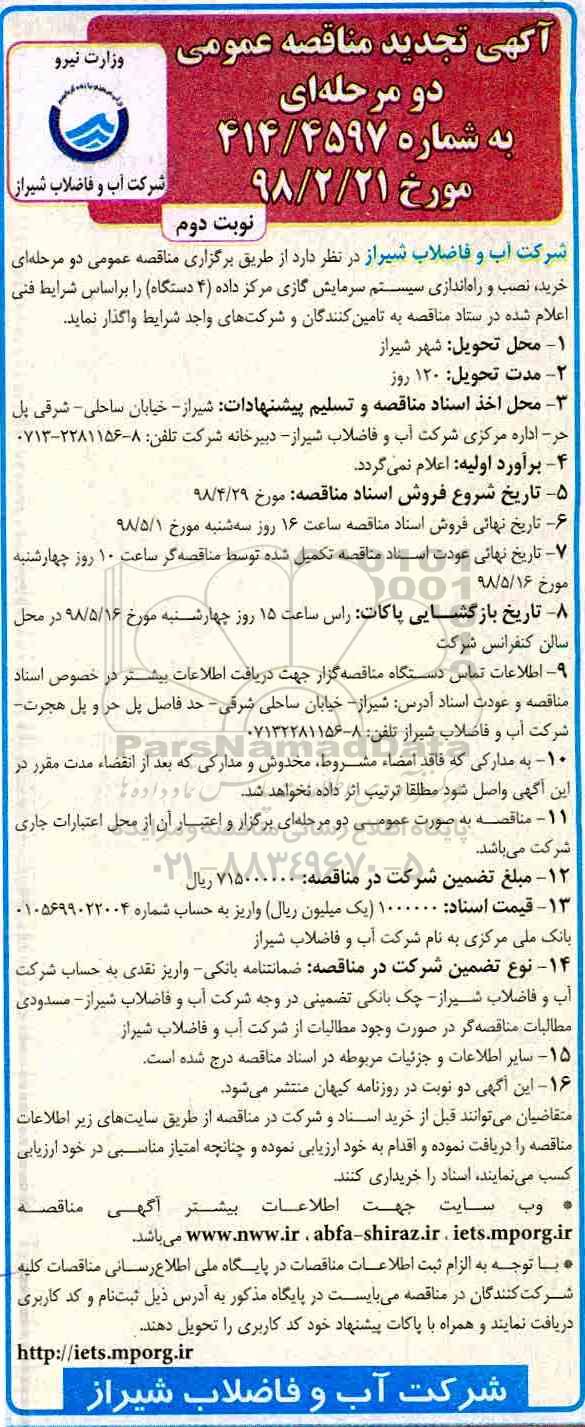 آگهی تجدید مناقصه عمومی
دو مرحله‌ای
به شماره ۴۱۴/۴۵۹۷
مورخ ۹۸/۲/۲۱
وزارت نیرو
شرکت آب و فاضلاب شیراز
نوبت دوم
شرکت آب و فاضلاب شیراز در نظر دارد از طریق برگزاری مناقصه عمومی دو مرحله‌ای
خرید، نصب و راه‌اندازی سیستم سرمایش گازی مرکز داده (۴ دستگاه) را براساس شرایط فنی
اعلام شده در ستاد مناقصه به تامین‌کنندگان و شرکت‌های واجد شرایط واگذار نماید.
۱- محل تحویل: شهر شیراز
۲- مدت تحویل: ۱۲۰ روز
۳- محل اخذ اسناد مناقصه و تسلیم پیشنهادات: شیراز- خیابان ساحلی- شرقی پل
حر- اداره مرکزی شرکت آب و فاضلاب شیراز- دبیرخانه شرکت تلفن: ۸-۲۲۸۱۱۵۶-۰۷۱۳
۴- برآورد اولیه: اعلام نمی‌گردد.
۵- تاریخ شروع فروش اسناد مناقصه: مورخ ۹۸/۴/۲۹
۶- تاریخ نهائی فروش اسناد مناقصه ساعت ۱۶ روز سه‌شنبه مورخ ۹۸/۵/۱
۷- تاریخ نهائی عودت اسناد مناقصه تکمیل شده توسط مناقصه‌گر ساعت ۱۰ روز چهارشنبه
مورخ ۹۸/۵/۱۶
۸- تاریخ بازگشایی پاکات: راس ساعت ۱۵ روز چهارشنبه مورخ ۹۸/۵/۱۶ در محل
سالن کنفرانس شرکت
۹- اطلاعات تماس دستگاه مناقصه‌گزار جهت دریافت اطلاعات بیشتر در خصوص اسناد
مناقصه و عودت اسناد آدرس: شیراز- خیابان ساحلی شرقی- حد فاصل پل حر و پل هجرت-
شرکت آب و فاضلاب شیراز تلفن: ۸-۰۷۱۳۲۲۸۱۱۵۶
ParsNamadData
۱۰- به مدارکی که فاقد امضاء مشروط، مخدوش و مدارکی که بعد از انقضاء مدت مقرر در
این آگهی واصل شود مطلقا ترتیب اثر داده نخواهد شد.
۱۱- مناقصه به صورت عمومی دو مرحله‌ای برگزار و اعتبار آن از محل اعتبارات جاری
شرکت می‌باشد.
پایگاه اطلاع رسانی مناقصه و مزایده
۰۲۱-۸۸۳۴۹۶۷۰-۵
۱۲- مبلغ تضمین شرکت در مناقصه: ۷۱۵۰۰۰۰۰۰ ریال
۱۳- قیمت اسناد: ۱۰۰۰۰۰۰ (یک میلیون ریال) واریز به حساب شماره ۰۱۰۵۶۹۹۰۲۲۰۰۴
بانک ملی مرکزی به نام شرکت آب و فاضلاب شیراز
۱۴- نوع تضمین شرکت در مناقصه: ضمانتنامه بانکی- واریز نقدی به حساب شرکت
آب و فاضلاب شیراز- چک بانکی تضمینی در وجه شرکت آب و فاضلاب شیراز- مسدودی
مطالبات مناقصه‌گر در صورت وجود مطالبات از شرکت آب و فاضلاب شیراز
۱۵- سایر اطلاعات و جزئیات مربوطه در اسناد مناقصه درج شده است.
۱۶- این آگهی دو نوبت در روزنامه کیهان منتشر می‌شود.
متقاضیان می‌توانند قبل از خرید اسناد و شرکت در مناقصه از طریق سایت‌های زیر اطلاعات
مناقصه را دریافت نموده و اقدام به خود ارزیابی نموده و چنانچه امتیاز مناسبی در خود ارزیابی
کسب می‌نمایند، اسناد را خریداری کنند.
* وب سایت جهت اطلاعات بیشتر آگهی مناقصه
www.nww.ir ، abfa-shiraz.ir ، iets.mporg.ir می‌باشد.
* با توجه به الزام ثبت اطلاعات مناقصات در پایگاه ملی اطلاع‌رسانی مناقصات کلیه
شرکت‌کنندگان در مناقصه می‌بایست در پایگاه مذکور به آدرس ذیل ثبت‌نام و کد کاربری
دریافت نمایند و همراه با پاکات پیشنهاد خود کد کاربری را تحویل دهند.
http://iets.mporg.ir
شرکت آب و فاضلاب شیراز